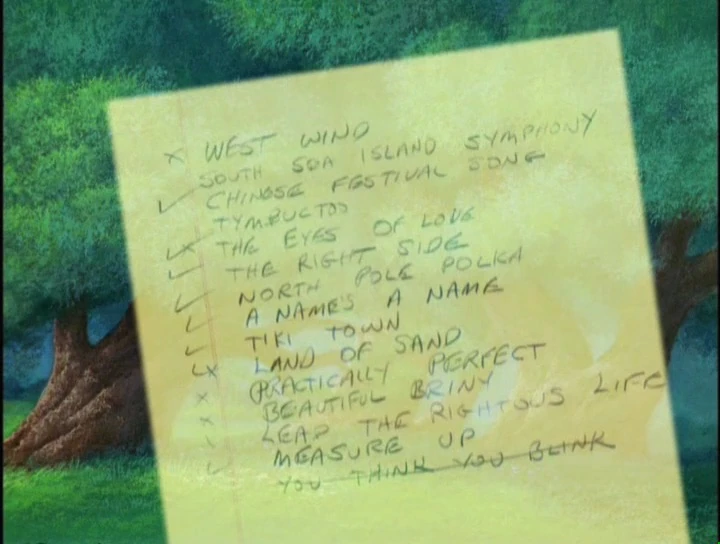 x WEST WIND
SOUTH SEA ISLAND SYMPHONY
✓ CHINESE FESTIVAL SONG
TYMBUCTOO
✓x THE EYES OF LOVE
✓ THE RIGHT SIDE
✓ NORTH POLE POLKA
✓ A NAME'S A NAME
✓ TIKI TOWN
✓x LAND OF SAND
x PRACTICALLY PERFECT
x BEAUTIFUL BRINY
✓ LEAD THE RIGHTOUS LIFE
✓ MEASURE UP
YOU THINK YOU BLINK